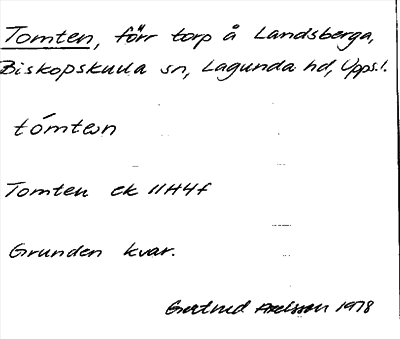 Tomten, förr torp å Landsberga,
Biskopskulla sn, Lagunda hd, Upps.l.
tómten
Tomten ek 11H4f
Grunden kvar.
Gertrud Axelsson 1978